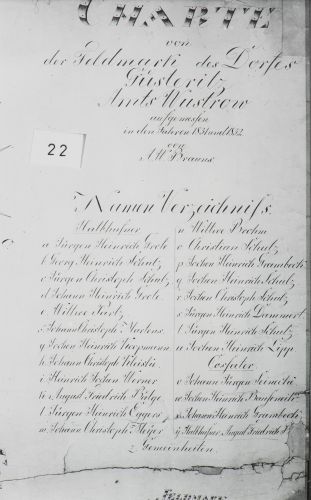 CHARTE
von
der Feldmark des Dorfes
Güsteritz
Amts Wustrow
aufgemessen
in den Jahren 1831 und 1832.
von
A. W. Brauns.
22
Namen Verzeichniss.
Halbhufner
a Jürgen Heinrich Grote
b Georg Heinrich Schulz
c Jürgen Christoph Schulz
d Johann Heinrich Grote
e Wittwe
f Johann Christoph
g Jochen Heinrich Koopmann
h Johann Christoph
i Heinrich Jochen Werner
k August Friedrich
l Jürgen Heinrich Eggers
m Johann Christoph Meyer
n Wittwe Brohm
o Christian Schulz
p Jochen Heinrich
q Jochen Heinrich Schulz
r Jochen Christoph Schulz
s Jürgen Heinrich Lammert
t Jürgen Heinrich Schulz
u Jochen Heinrich Lipp
Cossater
v Johann Jürgen
w Jochen Heinrich
x Johann Heinrich
y Halbhufner August Friedrich
z Gemeinheiten